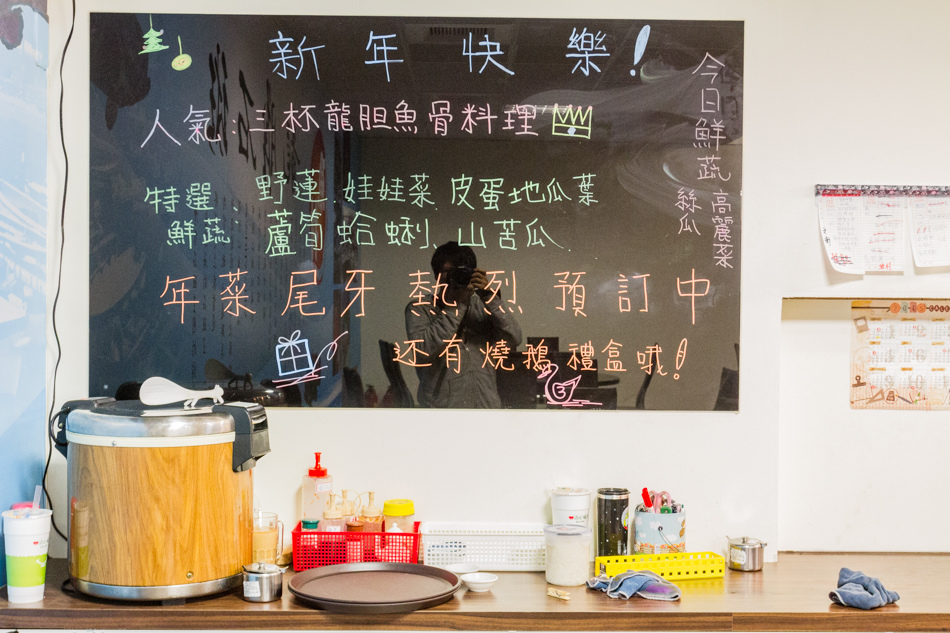 新年快樂!
人氣:三杯龍胆魚骨料理
特選:野蓮.娃娃菜.皮蛋地瓜葉
鮮蔬:蘆筍蛤蜊、山苦瓜.
年菜尾牙熱烈預訂中
还有燒鵝禮盒哦!
今日鮮蔬
高麗菜
絲瓜